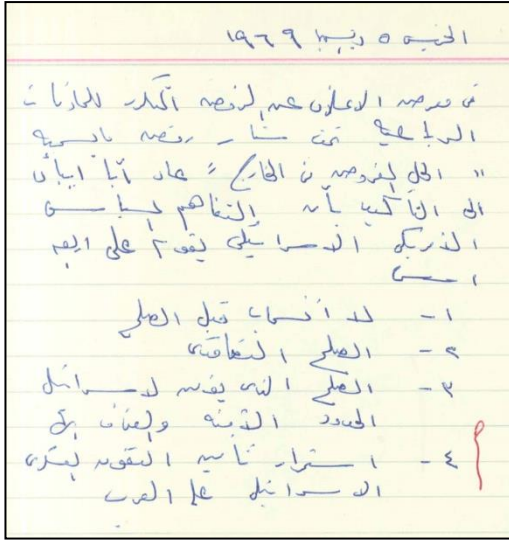 الخميس ٥ ديسمبر ١٩٦٩
فى معرض الاعلان عن الرفض المتكرر للمحادثات
الرباعية تحت ستار رفض ما يسميه
" الحل المفروض من الخارج " عاد أبا ايبان
الى التأكيد بأن التفاهم السياسى
الأمريكى الاسرائيلى يقوم على اربع
اسس
١- لا انسحاب قبل الصلح
٢- الصلح التعاقدى
٣- الصلح الذى يؤمن لاسرائيل
الحدود الآمنه والمعترف بها
٤- استمرار تأمين التفوق العسكرى
الاسرائيلى على العرب